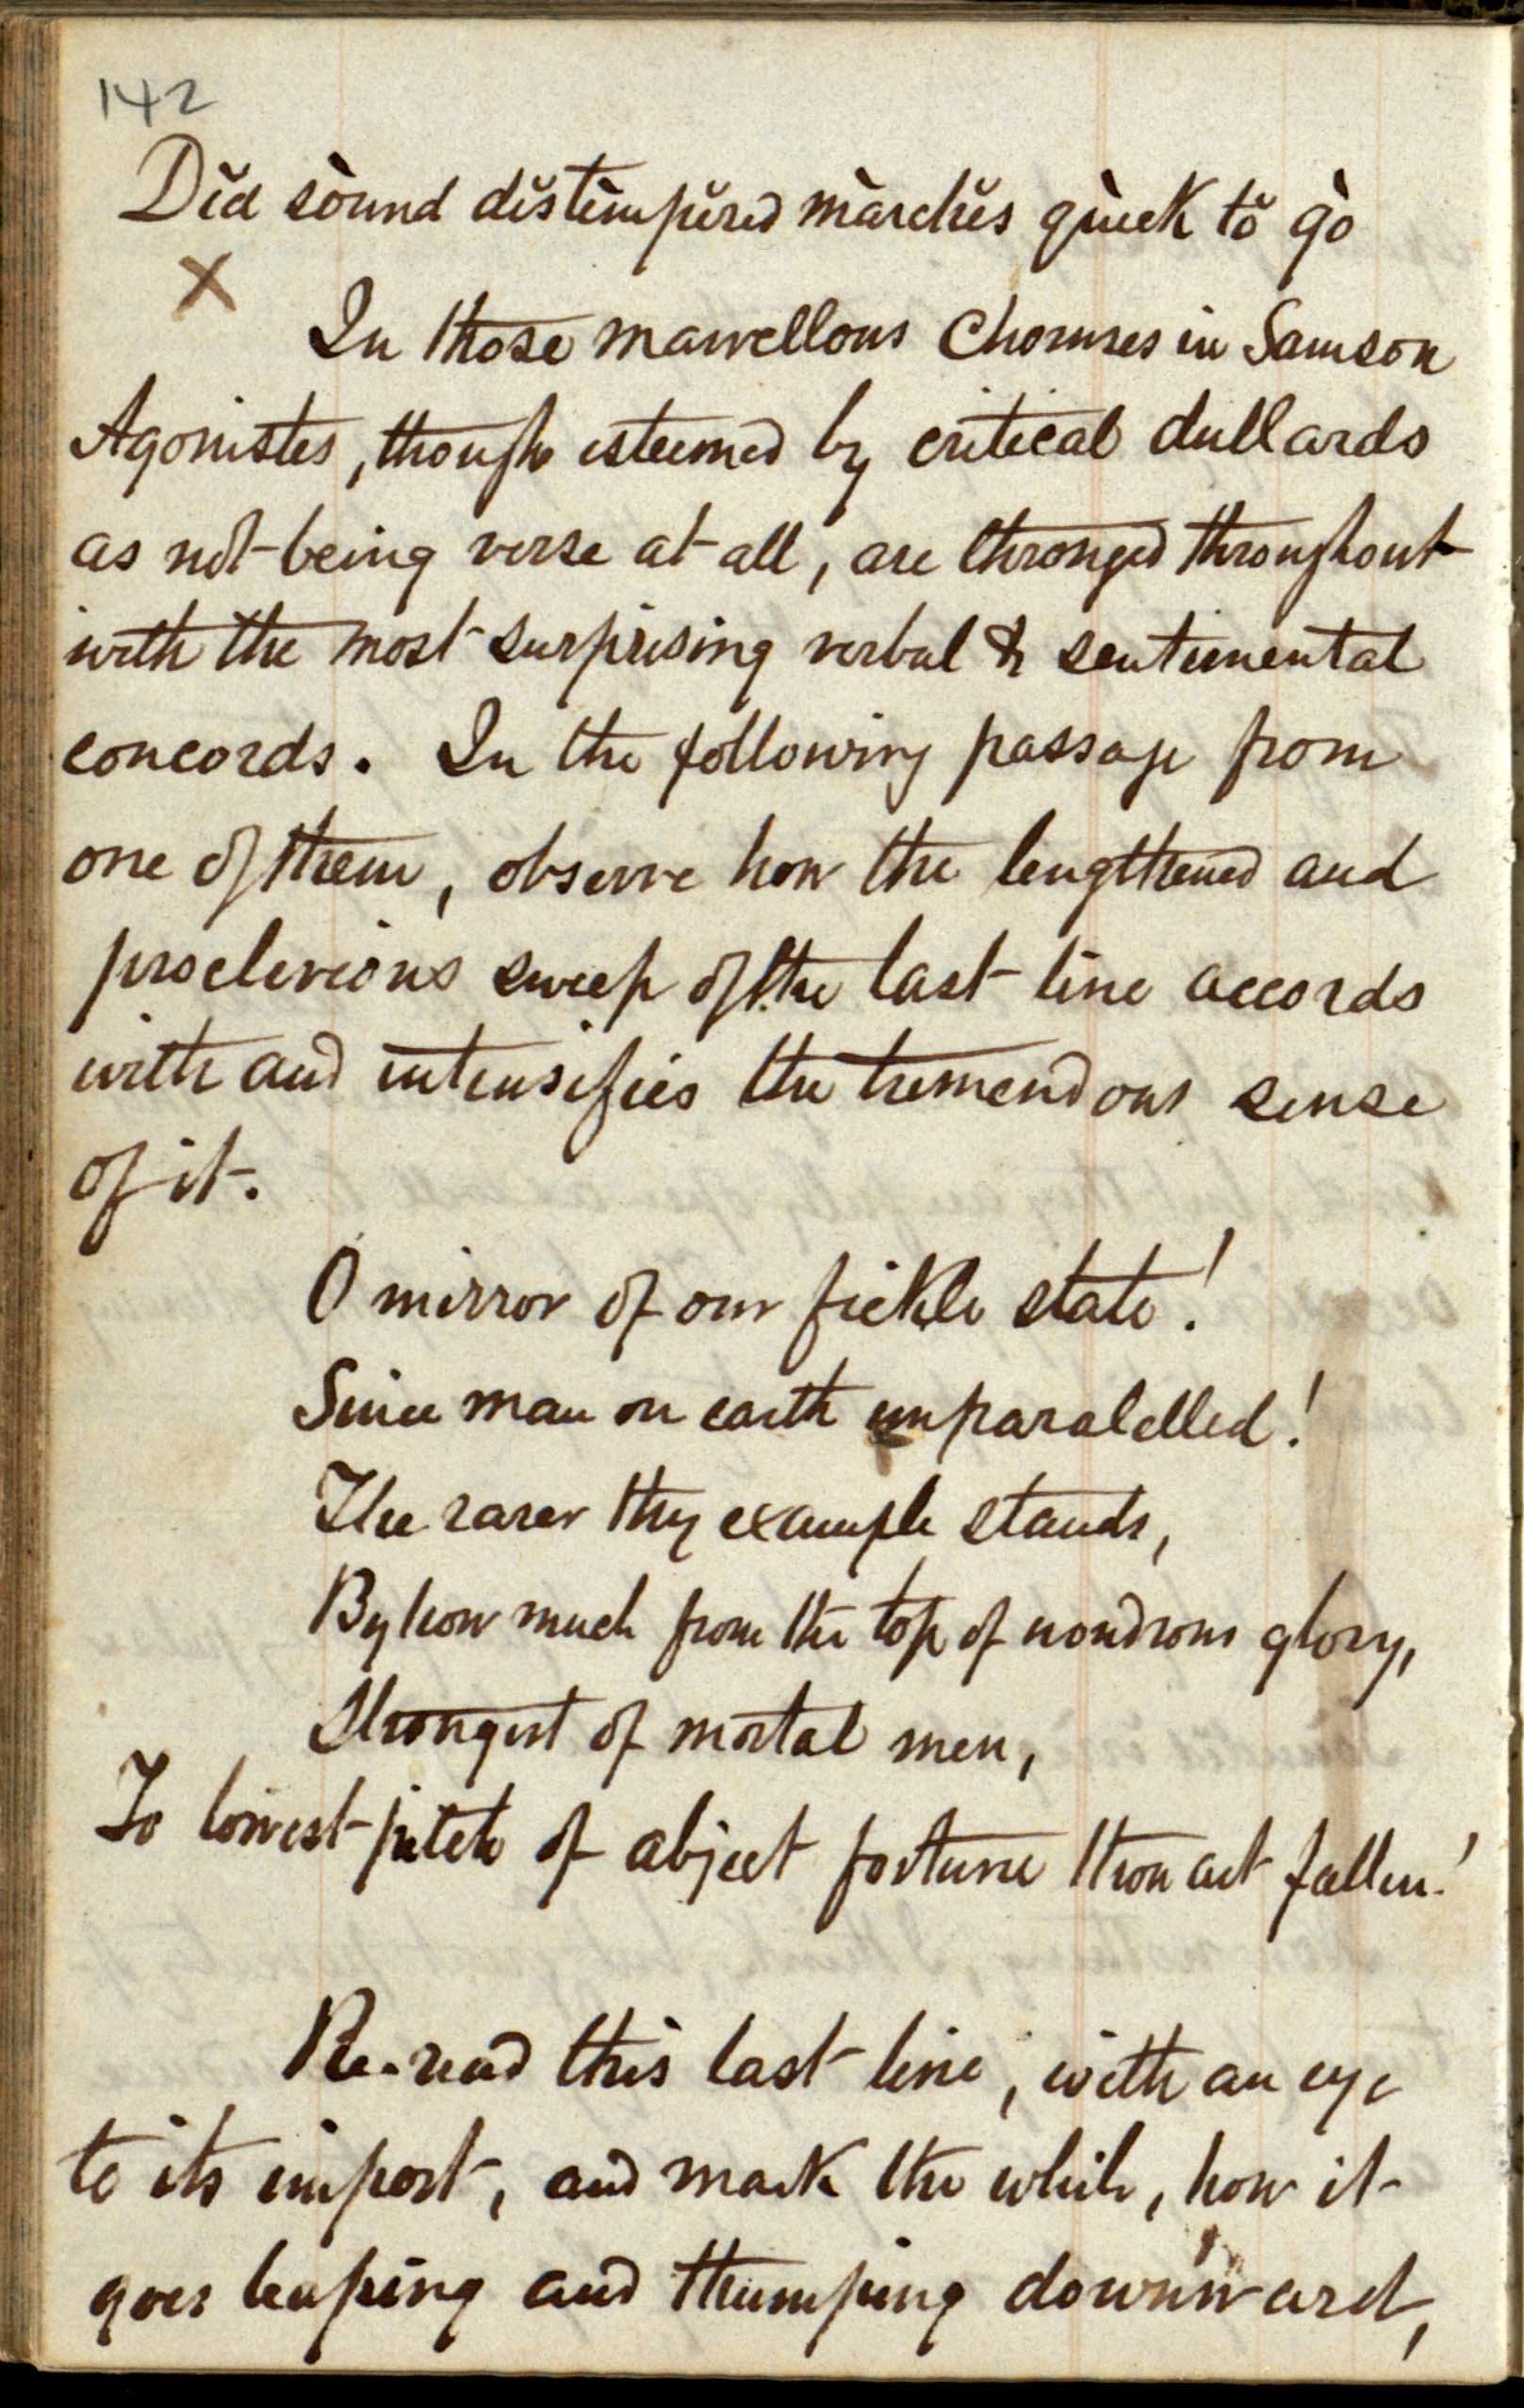 142
Dĭd sòund dĭstèmpĕred màrchĕs qùick tŏ gò
X
In those marvellous Choruses in Samson
Agonistes, though esteemed by critical dullards
as not being verse at all, are thronged throughout
with the most surprising verbal & sentimental
concords. In the following passage from
one of them, observe how the lengthened and
proclivious sweep of the last line accords
with and intensifies the tremendous sense
of it.
O mirror of our fickle state!
Since man on earth unparalelled!
The rarer thy example stands,
By how much from the top of wondrous glory,
Strongest of mortal men,
To lowest pitch of abject fortune thou art fallen!
Re-read this last line, with an eye
to its import, and mark the while, how it
goes leaping and thumping downward,